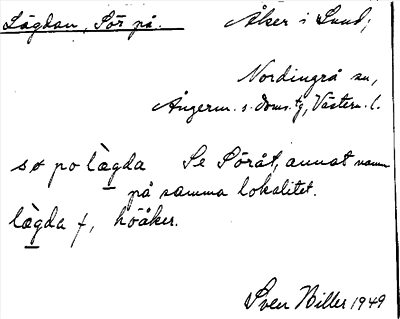 Lägdan, Sör på. Åker i Sund;
Nordingrå sn,
Ångerm. s. doms. tg, Västern. l.
sø po lägda Se Söråt, annat namn
på samma lokalitet.
lägda f, höåker.
Sven Biller 1949